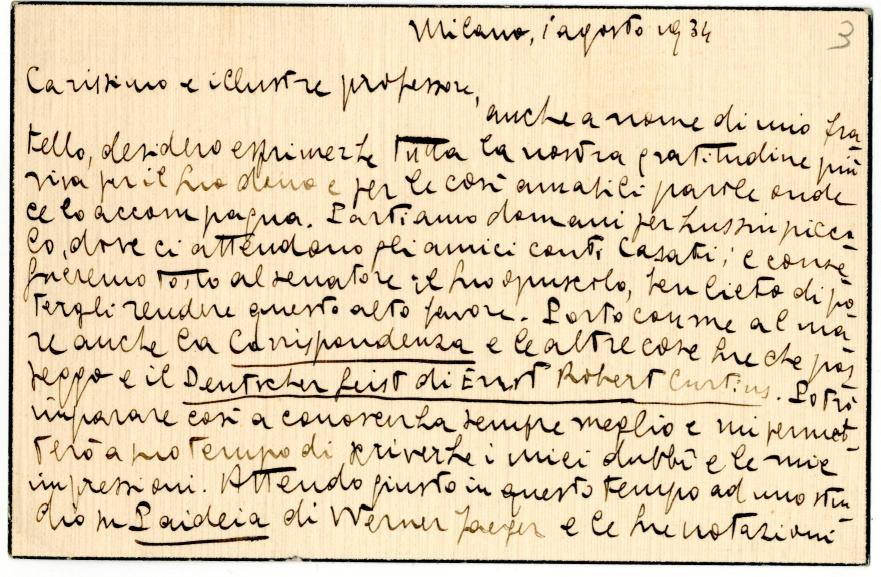 3
Milano, 1 agosto 1934
Carissimo e illustre professore,
anche a nome di mio fra-
tello, desidero esprimerLe tutta la nostra gratitudine più
viva per il Suo dono e per le così amabili parole onde
ce lo accompagna. Partiamo domani per Lussinpicco-
lo, dove ci attendono gli amici conti Casati; e conse-
gneremo tosto al senatore il Suo opuscolo, ben lieto di po-
tergli rendere questo alto favore. Porto con me al ma-
re anche la Corrispondenza e le altre cose Sue che pos-
seggo e il Deutscher Geist di Ernst Robert Curtius. Potrò
imparare così a conoscerLa sempre meglio e mi permet-
terò a suo tempo di scriverLe i miei dubbî e le mie
impressioni. Attendo giusto in questo tempo ad uno stu-
dio su Paideia di Werner Jaeger e le Sue notazioni